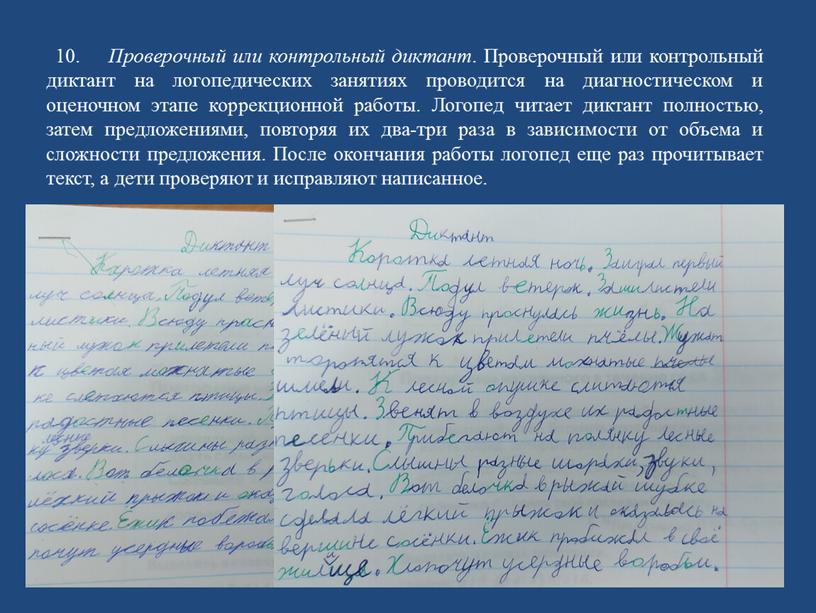 10. Проверочный или контрольный диктант. Проверочный или контрольный
диктант на логопедических занятиях проводится на диагностическом и
оценочном этапе коррекционной работы. Логопед читает диктант полностью,
затем предложениями, повторяя их два-три раза в зависимости от объема и
сложности предложения. После окончания работы логопед еще раз прочитывает
текст, а дети проверяют и исправляют написанное.
Диктант
Каротка летняя
луч солнцы. Подул
листики. Всюду
ный лужок прилетели
к цветам мохнатые
ке слетаются птицы.
радостные песенки.
лесные
ку зверки. Слышны
лоса. Вот белочка в
лёхкий прыжок и
сосёнке. Ежик
почут усердные
Диктант
Коротка летняя ночь. Заиграл первый
луч солнца. Подул ветерок. Зашилистели
листики. Всюду проснулась жизнь. На
зелёный лужок прилетели пчёлы. Жужат
торопятся к цветам мохнатые пчелы
шмели. К лесной опушке слитаются
птицы. Звенят в воздухе их радостные
песенки. Прибегают на полянку лесные
зверьки. Слышны разные шорохи, звуки,
голоса. Вот белочка в рыжай шубке
сделала лёгкий прыжок и оказалась на
вершине сосёнки. Ёжик пробижал в своё
жилище. Хлопочут усердные воробьи.